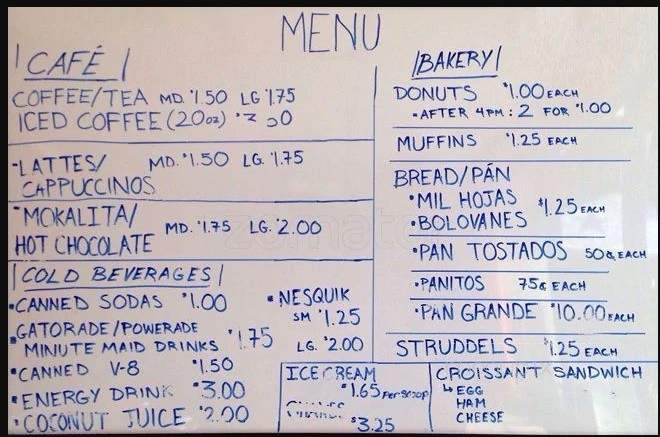 MENU
CAFÉ
COFFEE/TEA MD. $1.50 LG $1.75
ICED COFFEE (20oz)
LATTES/ MD. $1.50 LG. $1.75
CAPPUCCINOS
MOKALITA/ MD. $1.75 LG. $2.00
HOT CHOCOLATE
COLD BEVERAGES
•CANNED SODAS $1.00
•GATORADE/POWERADE
MINUTE MAID DRINKS $1.75
•CANNED V-8 $1.50
•ENERGY DRINK $3.00
•COCONUT JUICE $2.00
•NESQUIK
SM $1.25
LG. $2.00
ICE CREAM
$1.65 PER SCOOP
$3.25
BAKERY
DONUTS $1.00 EACH
•AFTER 4PM: 2 FOR $1.00
MUFFINS $1.25 EACH
BREAD/PÁN
•MIL HOJAS
•BOLOVANES $1.25 EACH
•PAN TOSTADOS 50¢ EACH
•PANITOS 75¢ EACH
•PAN GRANDE $10.00 EACH
STRUDDELS $1.25 EACH
CROISSANT SANDWICH
↳ EGG
HAM
CHEESE
zomato